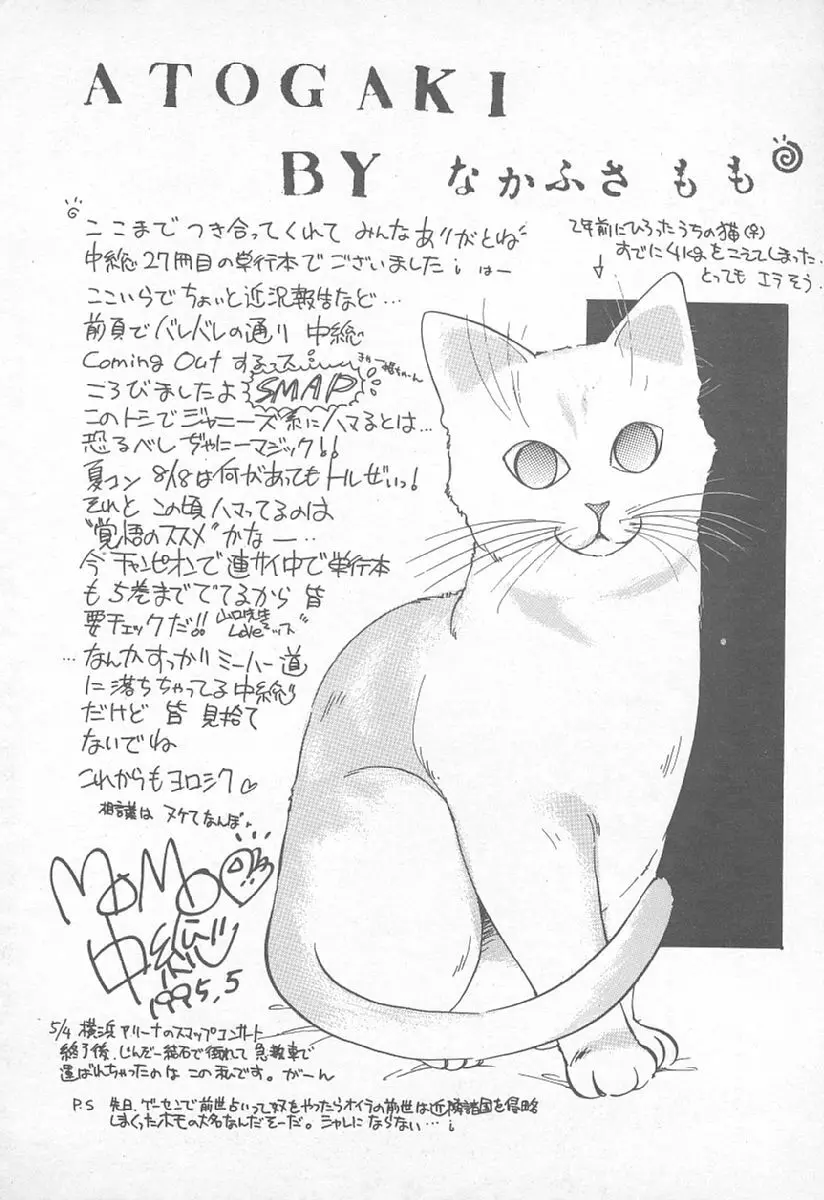 ATOGAKI
BY なかふさ もも
ここまで つき合ってくれて みんなありがとね
中総27冊目の単行本でございました
ここいらでちょいと近況報告など…
前頁でバレバレの通り 中総
Coming Out する
ころびましたよ SMAP
このトシでジャニーズ系にハマるとは…
恐るべし ぢゃにーマジック!!
夏コン 8/18は何があってもトルぜいっ!
それと この頃ハマってるのは
"覚悟のススメ"かなー…
今チャンピオンで連サイ中で単行本
も5巻まででてるから 皆
要チェックだ!! 山口先生Loveッス
…なんかすっかりミーハー道
に落ちちゃってる中総
だけど 皆 見捨て
ないでね
これからもヨロシク♡
相談は ヌケてなんぼ
MOMO
中総
1995.5
2年前にひろったうちの猫(♀)
すでに4kgをこえてしまった.
とっても エラそう.
5/4 横浜アリーナのスマップコンサート
終了後、じんぞー結石で倒れて 急救車で
運ばれちゃったのは この私です。がーん
P.S 先日、ゲーセンで前世占いって奴をやったらオイラの前世は近隣諸国を侵略
しまくったホモの大名なんだそーだ。シャレにならない…